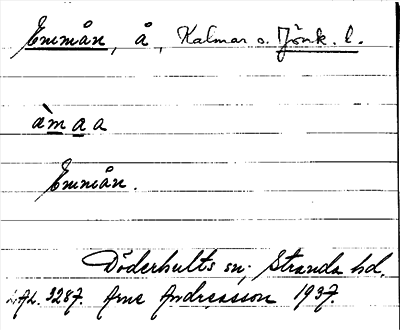 Emmån, å, Kalmar o. Jönk. l.
àmaa
Emmån.
Döderhults sn; Stranda hd.
LAL. 3287. Arne Andreasson 1937.